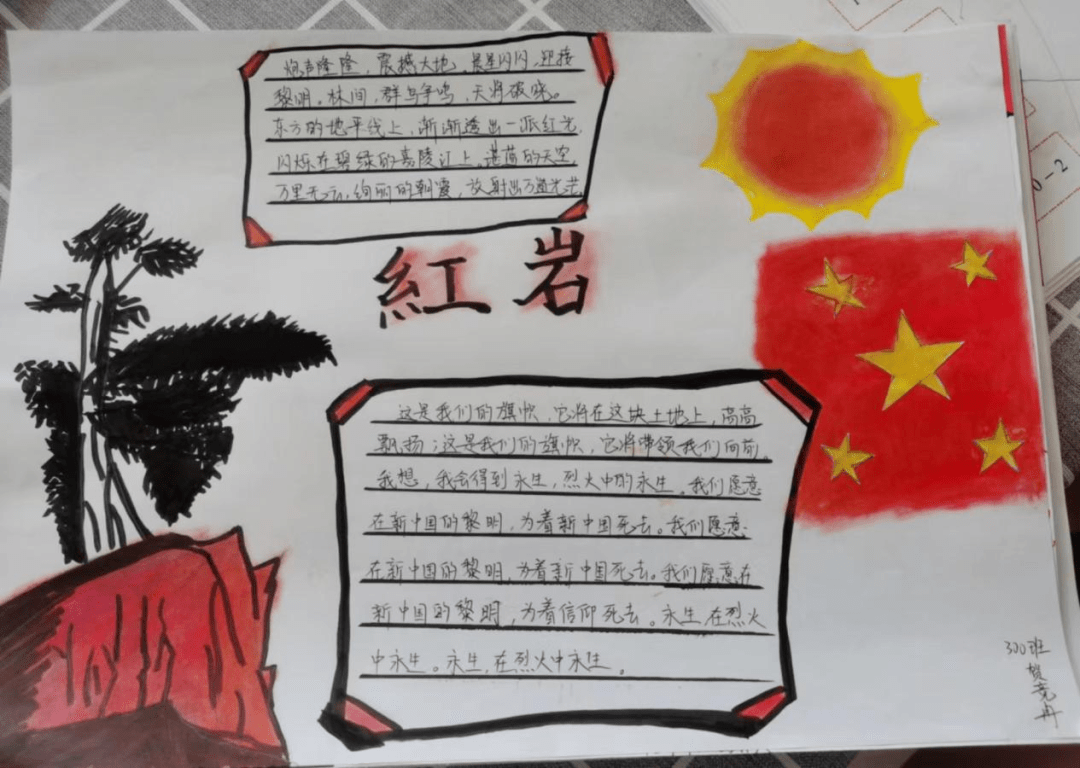 炮声隆隆，震撼大地。晨星闪闪，迎接
黎明。林间，群鸟争鸣，天将破晓。
东方的地平线上，渐渐透出一派红光，
闪烁在碧绿的嘉陵江上，湛蓝的天空，
万里无云，绚丽的朝霞，放射出万道光芒
紅岩
这是我们的旗帜，它将在这块土地上，高高
飘扬；这是我们的旗帜，它将带领我们向前。
我想，我会得到永生，烈火中的永生。我们愿意
在新中国的黎明，为着新中国死去。我们愿意
在新中国的黎明，为着新中国死去。我们愿意在
新中国的黎明，为着信仰死去。永生，在烈火
中永生。永生，在烈火中永生。
300班
贺竞冉
0-2